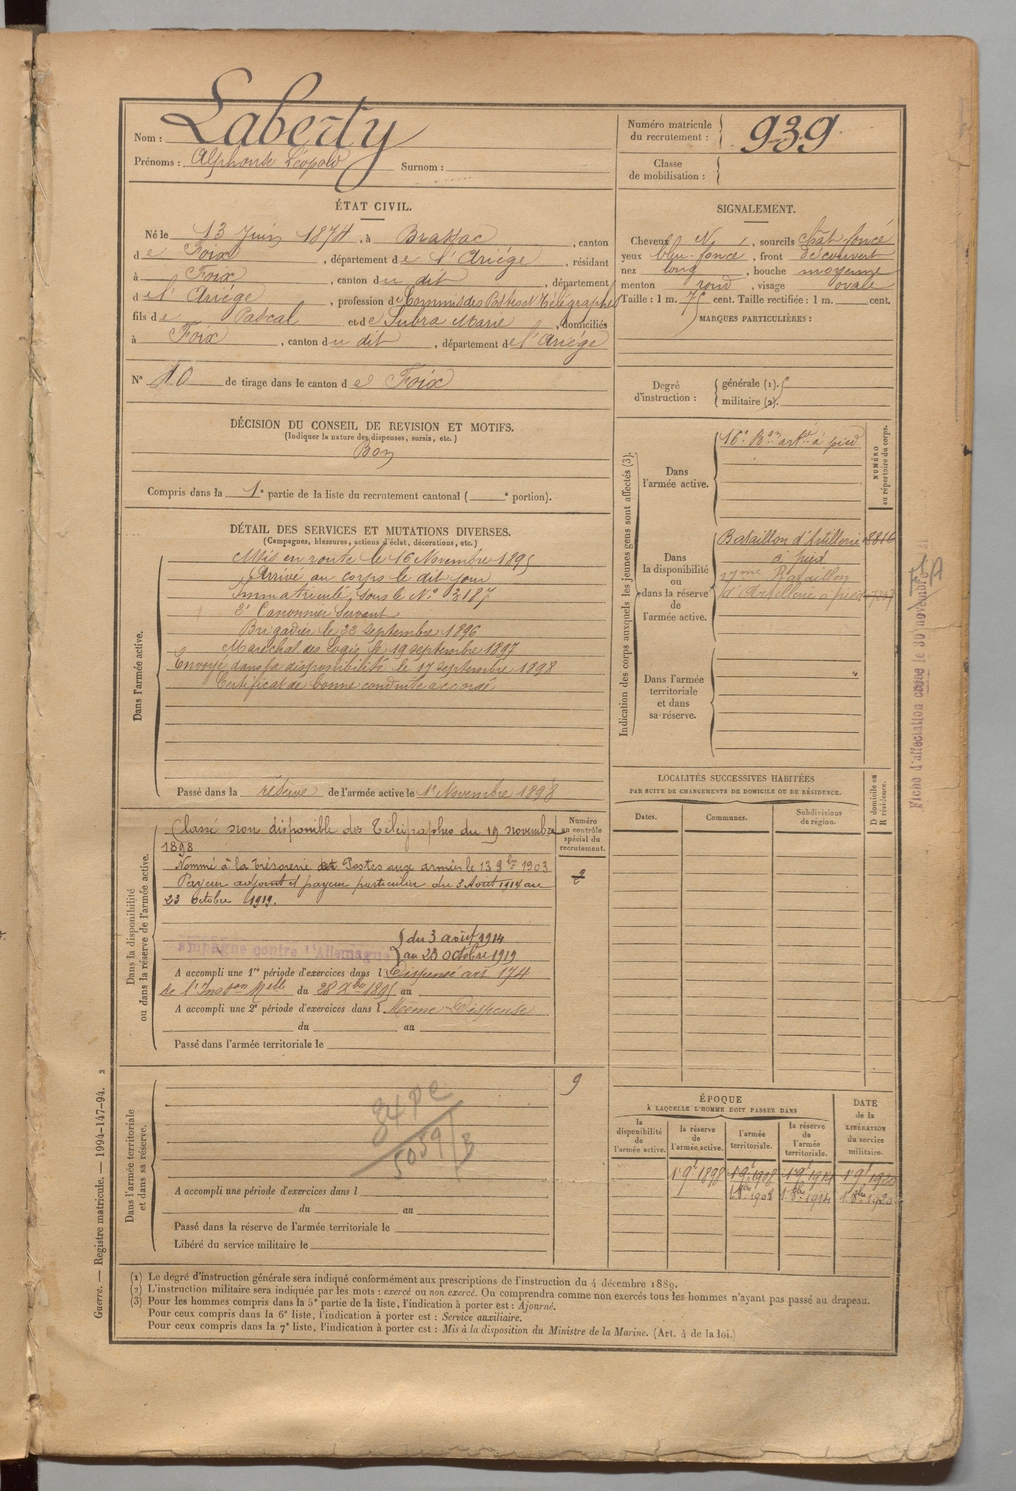 Nom : Laberty
Prénoms : Alphonse Léopold Surnom :
Numéro matricule du recrutement : 939
Classe de mobilisation :
ÉTAT CIVIL.
Né le 13 Juin 1874, à Brassac, canton
de Foix, département de l'Ariège, résidant
à Foix, canton du dit, département
de l'Ariège, profession de Commis des Postes et Télégraphes
fils de Pascal et de Subra Marie, domiciliés
à Foix, canton du dit, département de l'Ariège
N° 10 de tirage dans le canton de Foix
SIGNALEMENT.
Cheveux N, sourcils chât-foncé
yeux bleu-foncé, front découvert
nez long, bouche moyenne
menton rond, visage ovale
Taille : 1 m. 75 cent. Taille rectifiée : 1 m. cent.
MARQUES PARTICULIÈRES :
Degré d'instruction : générale (1).
militaire (2).
DÉCISION DU CONSEIL DE REVISION ET MOTIFS.
(Indiquer la nature des dispenses, sursis, etc.)
Bon
Compris dans la 1e partie de la liste du recrutement cantonal ( e portion).
DÉTAIL DES SERVICES ET MUTATIONS DIVERSES.
(Campagnes, blessures, actions d'éclat, décorations, etc.)
Dans l'armée active.
Mis en route le 16 Novembre 1895
Arrivé au corps le dit jour
Immatriculé sous le N° 3187
2e Canonnier Servant
Brigadier le 22 septembre 1896
Maréchal des Logis le 19 septembre 1897
Envoyé dans la disponibilité le 17 septembre 1898
Certificat de bonne conduite accordé
Passé dans la réserve de l'armée active le 1er Novembre 1898
Indication des corps auxquels les jeunes gens sont affectés (3).
NUMÉRO au répertoire du corps.
Dans l'armée active.
16e Bon artie à pied
Dans la disponibilité ou dans la réserve de l'armée active.
Bataillon d'Artillerie
à pied
Bataillon
d'Artillerie à pied
Dans l'armée territoriale et dans sa réserve.
Fiche d'affectation le 30 novembre
LOCALITÉS SUCCESSIVES HABITÉES
PAR SUITE DE CHANGEMENTS DE DOMICILE OU DE RÉSIDENCE.
D domicile ou R résidence.
Dates. Communes. Subdivisions de région.
Dans la disponibilité ou dans la réserve de l'armée active.
Numéro au contrôle spécial du recrutement.
Classé non disponible des Télégraphes du 19 novembre
1898
Nommé à la trésorerie et Postes aux armées le 13 9bre 1903
Payeur adjoint et payeur particulier du 3 Août 1914 au
23 Octobre 1919.
Campagne contre l'Allemagne du 3 août 1914
au 23 Octobre 1919
A accompli une 1re période d'exercices dans l Dispensé art 174
de l'Inson Melle du 28 Xbre 1895 au
A accompli une 2e période d'exercices dans l Même Dispense
du au
Passé dans l'armée territoriale le
9
Dans l'armée territoriale et dans sa réserve.
5059/B
A accompli une période d'exercices dans l
du au
Passé dans la réserve de l'armée territoriale le
Libéré du service militaire le
ÉPOQUE
À LAQUELLE L'HOMME DOIT PASSER DANS
DATE de la LIBÉRATION du service militaire.
la disponibilité de l'armée active. la réserve de l'armée active. l'armée territoriale. la réserve de l'armée territoriale.
1 9bre 1898 1 9bre 1908 1 9bre 1914 1 9bre 1920
1 8bre 1908 1 8bre 1914 1 8bre 1920
(1) Le degré d'instruction générale sera indiqué conformément aux prescriptions de l'instruction du 4 décembre 1889.
(2) L'instruction militaire sera indiquée par les mots : exercé ou non exercé. On comprendra comme non exercés tous les hommes n'ayant pas passé au drapeau.
(3) Pour les hommes compris dans la 5e partie de la liste, l'indication à porter est : Ajourné.
Pour ceux compris dans la 6e liste, l'indication à porter est : Service auxiliaire.
Pour ceux compris dans la 7e liste, l'indication à porter est : Mis à la disposition du Ministre de la Marine. (Art. 4 de la loi.)
Guerre. — Registre matricule. — 1994-147-94. 2